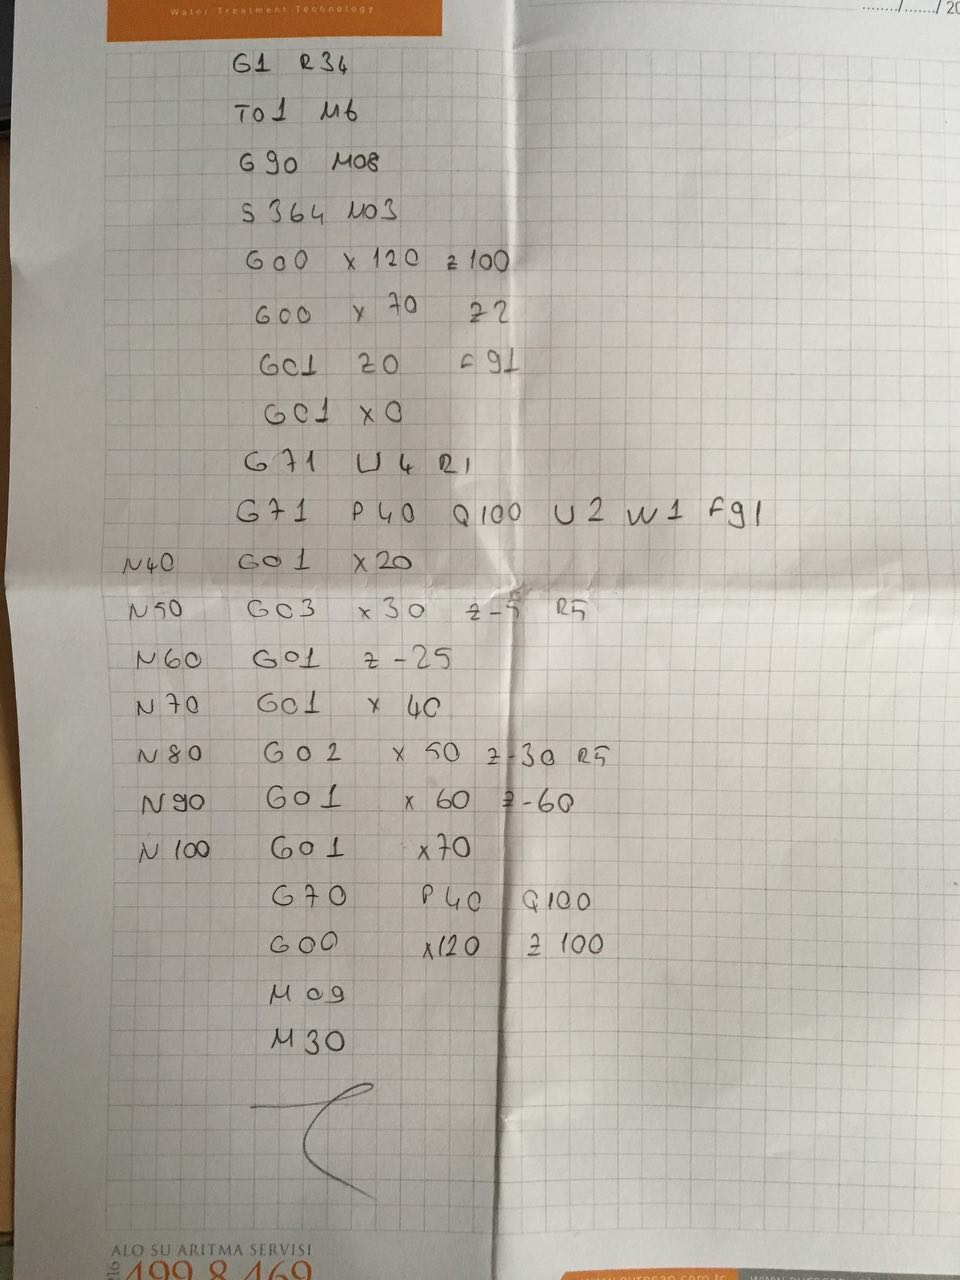 Water Treatment Technology
......../......./ 20
G1 R34
T01 M6
G90 M08
S364 M03
G00 x120 z100
G00 x 70 z2
G01 z0 F91
G01 x0
G71 U4 R1
G71 P40 Q100 U2 W1 F91
N40 G01 x20
N50 G03 x30 z-5 R5
N60 G01 z-25
N70 G01 x 40
N80 G02 x 50 z-30 R5
N90 G01 x 60 z-60
N100 G01 x70
G70 P40 Q100
G00 x120 z 100
M09
M30
ALO SU ARITMA SERVİSİ
499 8 469